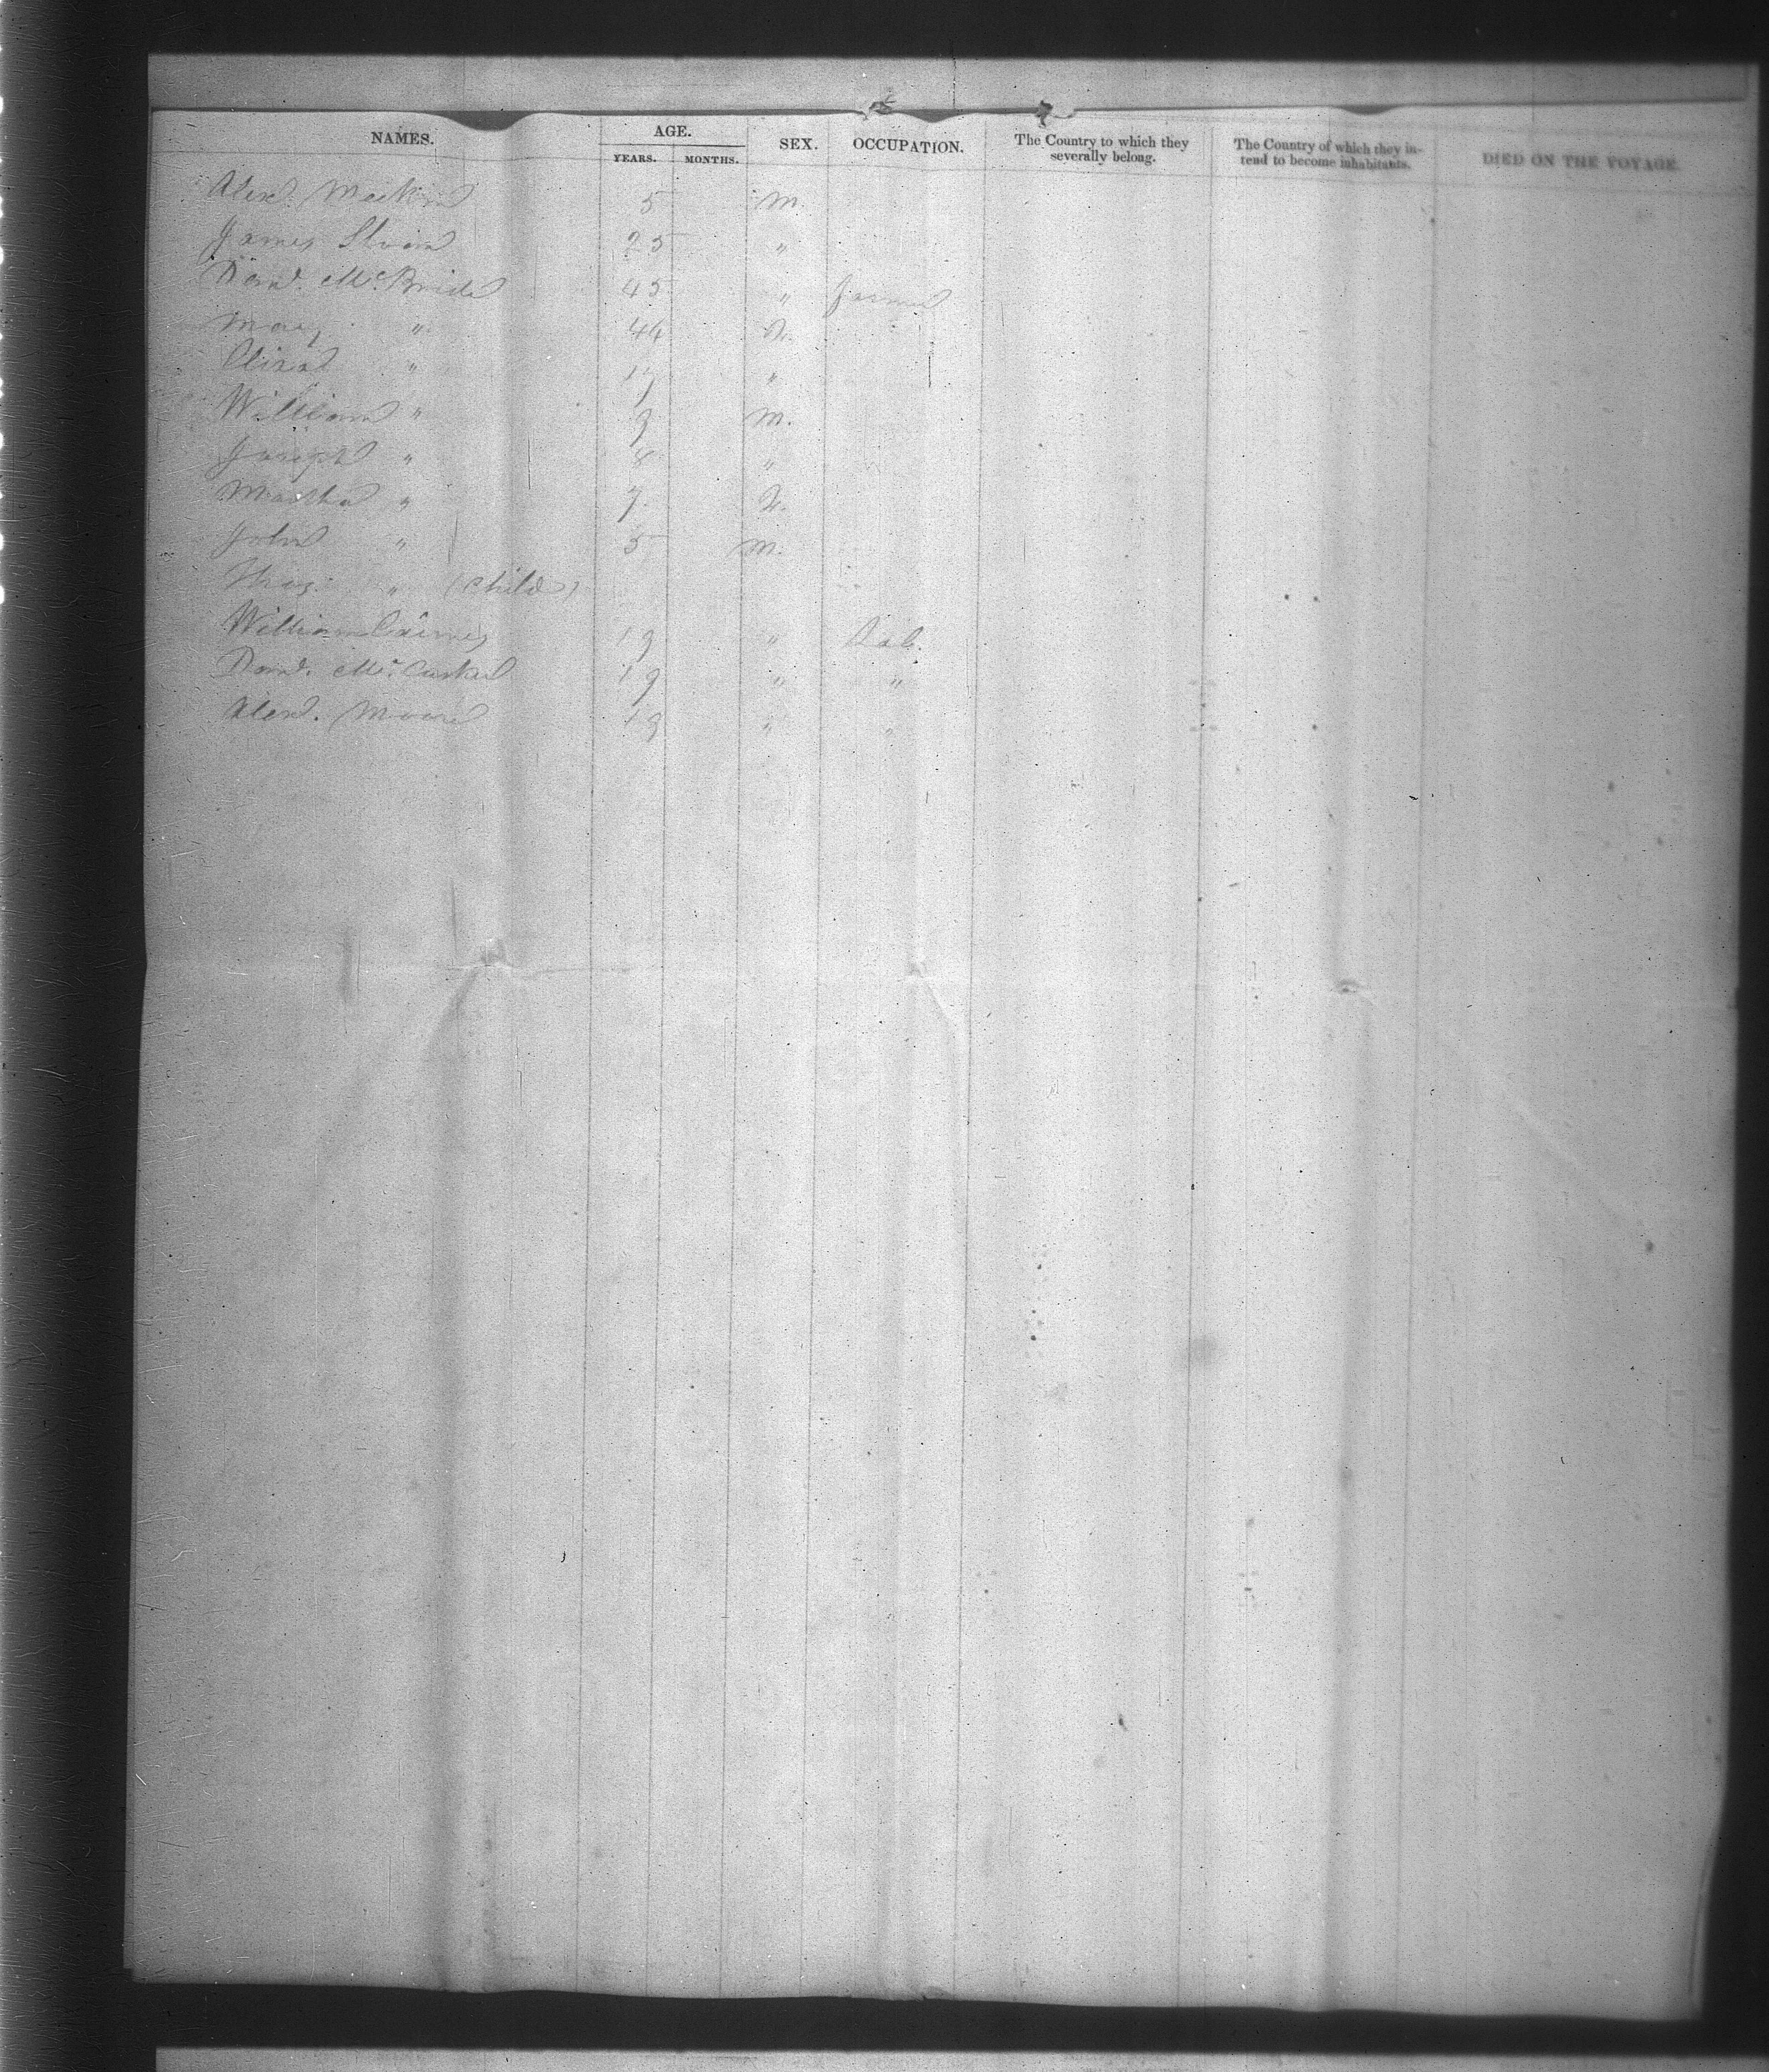 NAMES. AGE. SEX. OCCUPATION. The Country to which they severally belong. The Country of which they intend to become inhabitants. DIED ON THE VOYAGE.
YEARS. MONTHS.
Alexd. 5 M.
James 25 "
Dand. McBride 45 " Farmer
Mary " 44 F.
Eliza " 17 "
William " 9 M.
Joseph " 8 "
Martha " 7 F.
John " 5 M.
Thos. " (Child)
William Cairnes 19 " Lab.
Dand. McCusker 19 " "
Alexd. Moore 19 " "